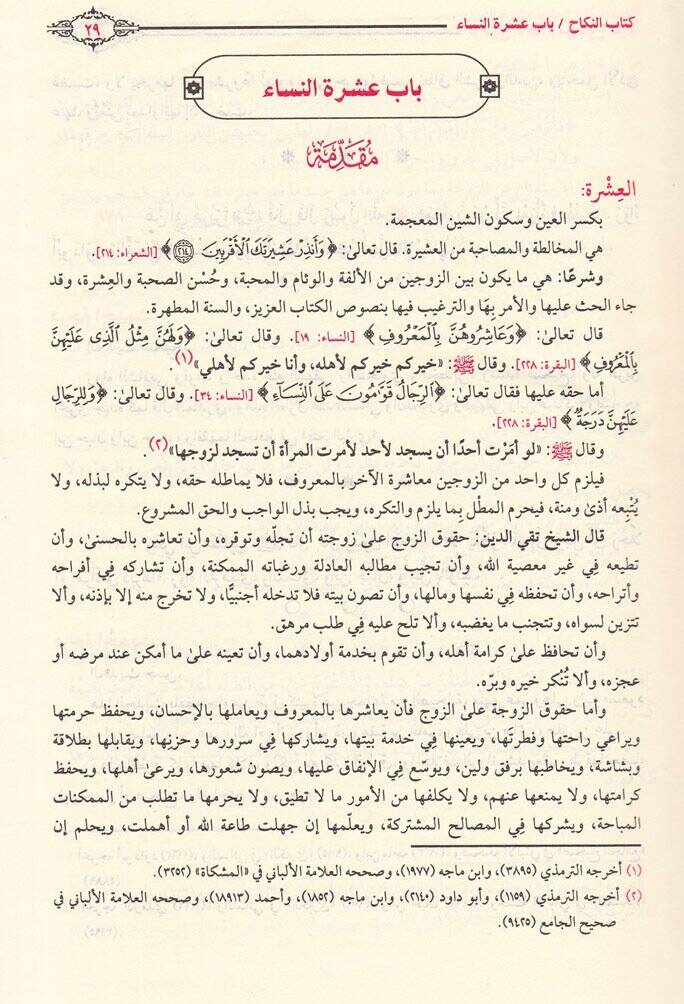 كتاب النكاح / باب عشرة النساء
٢٩
باب عشرة النساء
مُقَدِّمَة
العِشْرة:
بكسر العين وسكون الشين المعجمة.
هي المخالطة والمصاحبة من العشيرة. قال تعالىٰ: ﴿وَأَنذِرْ عَشِيرَتَكَ ٱلْأَقْرَبِينَ ٢١٤﴾ [الشعراء: ٢١٤].
وشرعًا: هي ما يكون بين الزوجين من الألفة والوئام والمحبة، وحُسْن الصحبة والعِشرة، وقد
جاء الحث عليها والأمر بِهَا والترغيب فيها بنصوص الكتاب العزيز، والسنة المطهرة.
قال تعالىٰ: ﴿وَعَاشِرُوهُنَّ بِٱلْمَعْرُوفِ﴾ [النساء: ١٩]. وقال تعالىٰ: ﴿وَلَهُنَّ مِثْلُ ٱلَّذِى عَلَيْهِنَّ
بِٱلْمَعْرُوفِ﴾ [البقرة: ٢٢٨]. وقال ﷺ: «خيركم خيركم لأهله، وأنا خيركم لأهلي»(١).
أما حقه عليها فقال تعالىٰ: ﴿ٱلرِّجَالُ قَوَّٰمُونَ عَلَى ٱلنِّسَآءِ﴾ [النساء: ٣٤]. وقال تعالىٰ: ﴿وَلِلرِّجَالِ
عَلَيْهِنَّ دَرَجَةٌ﴾ [البقرة: ٢٢٨].
وقال ﷺ: «لو أمَرْت أحدًا أن يسجد لأحد لأمرت المرأة أن تسجد لزوجها»(٢).
فيلزم كل واحد من الزوجين معاشرة الآخر بالمعروف، فلا يماطله حقه، ولا يتكره لبذله، ولا
يُتْبِعه أذىٰ ومنة، فيحرم المطْل بِما يلزم والتكره، ويجب بذل الواجب والحق المشروع.
قال الشيخ تقي الدين: حقوق الزوج علىٰ زوجته أن تجلّه وتوقره، وأن تعاشره بالحسنىٰ، وأن
تطيعه فِي غير معصية الله، وأن تجيب مطالبه العادلة ورغباته الممكنة، وأن تشاركه فِي أفراحه
وأتراحه، وأن تحفظه فِي نفسها ومالها، وأن تصون بيته فلا تدخله أجنبيًّا، ولا تخرج منه إلا بإذنه، وألا
تتزين لسواه، وتتجنب ما يغضبه، وألا تلح عليه فِي طلب مرهق.
وأن تحافظ علىٰ كرامة أهله، وأن تقوم بخدمة أولادهما، وأن تعينه علىٰ ما أمكن عند مرضه أو
عجزه، وألا تُنْكر خيره وبرّه.
وأما حقوق الزوجة علىٰ الزوج فأن يعاشرها بالمعروف ويعاملها بالإحسان، ويحفظ حرمتها
ويراعي راحتها وفطرتَها، ويعينها فِي خدمة بيتها، ويشاركها فِي سرورها وحزنِها، ويقابلها بطلاقة
وبشاشة، ويخاطبها برفق ولين، ويوسّع فِي الإنفاق عليها، ويصون شعورها، ويرعىٰ أهلها، ويحفظ
كرامتها، ولا يمنعها عنهم، ولا يكلفها من الأمور ما لا تطيق، ولا يحرمها ما تطلب من الممكنات
المباحة، ويشركها فِي المصالح المشتركة، ويعلّمها إن جهلت طاعة الله أو أهملت، ويحلم إن
(١) أخرجه الترمذي (٣٨٩٥)، وابن ماجه (١٩٧٧)، وصححه العلامة الألباني في «المشكاة» (٣٢٥٢).
(٢) أخرجه الترمذي (١١٥٩)، وأبو داود (٢١٤٠)، وابن ماجه (١٨٥٢)، وأحمد (١٨٩١٣)، وصححه العلامة الألباني في
صحيح الجامع (٩٤٢٥).